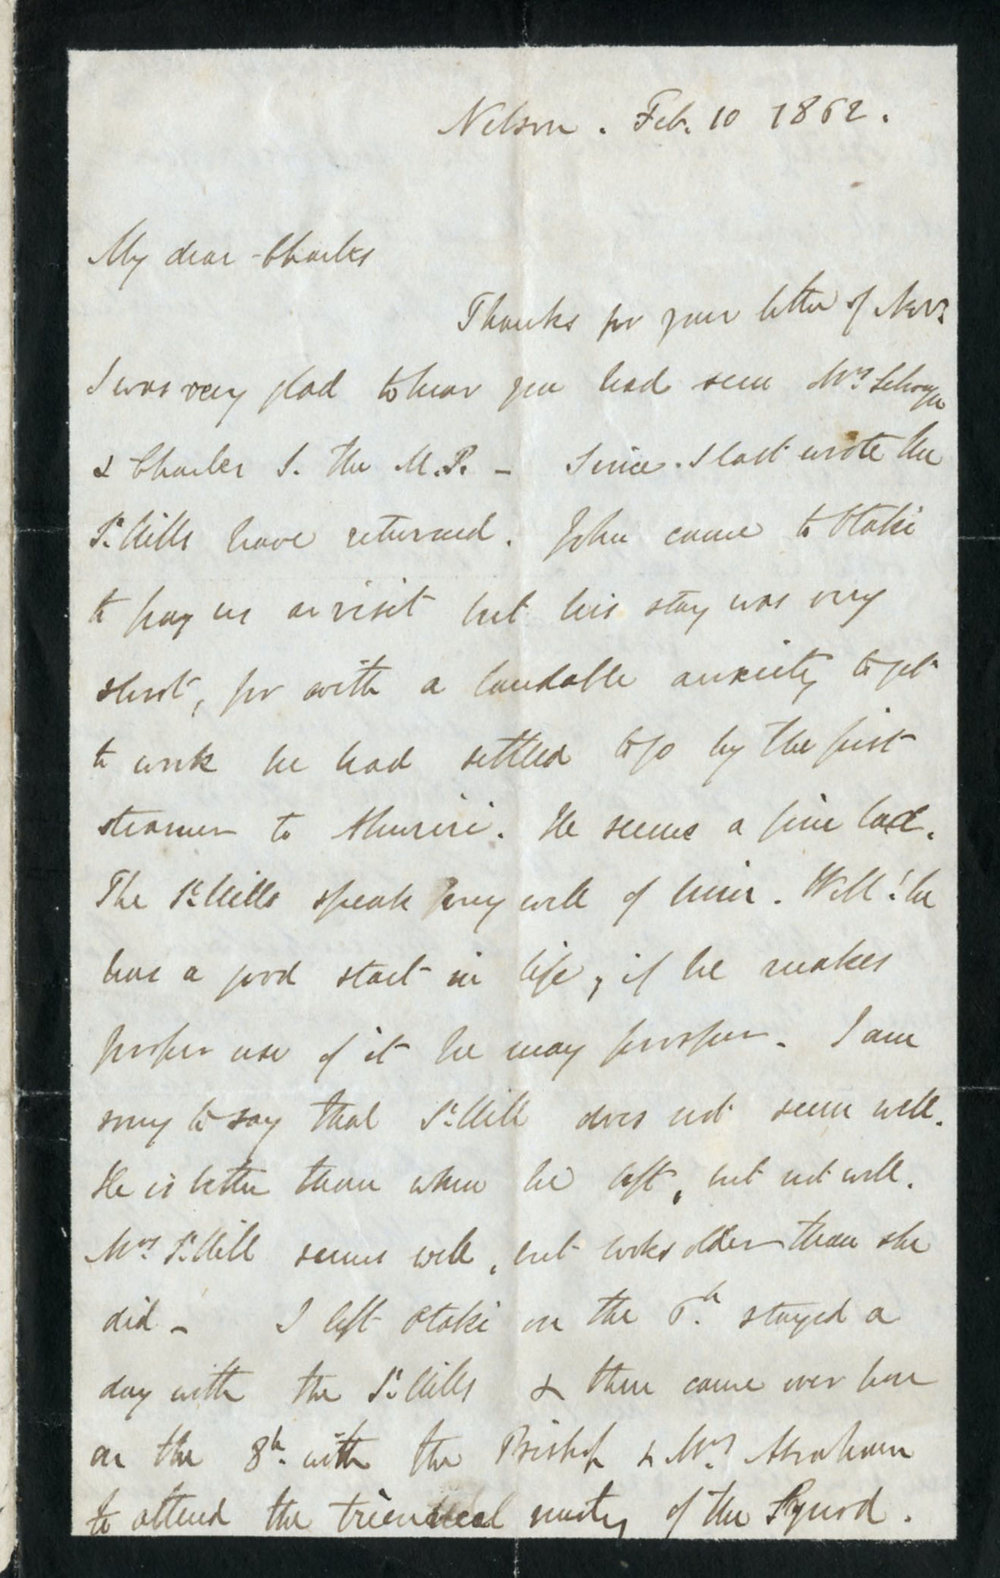 Nelson. Feb. 10 1862.
My dear Charles
Thanks for your letter of Novr.
I was very glad to hear you had seen Mrs Selwyn
& Charles S. the M.P. – Since I last wrote the
St. Hills have returned. John came to Otaki
to pay us a visit but his stay was very
short, for with a laudable anxiety to get
to work he had settled to go by the first
steamer to Ahuriri. He seems a fine lad.
The St. Hills speak very well of him. Well! he
has a good start in life, if he makes
proper use of it he may prosper. I am
sorry to say that St. Hill does not seem well.
He is better than when he left, but not well.
Mrs St. Hill seems well, but looks older than she
did – I left Otaki on the 6th. stayed a
day with the St. Hills & then came over here
on the 8th. with the Bishop & Mrs Abraham
to attend the triennial meeting of the Synod.